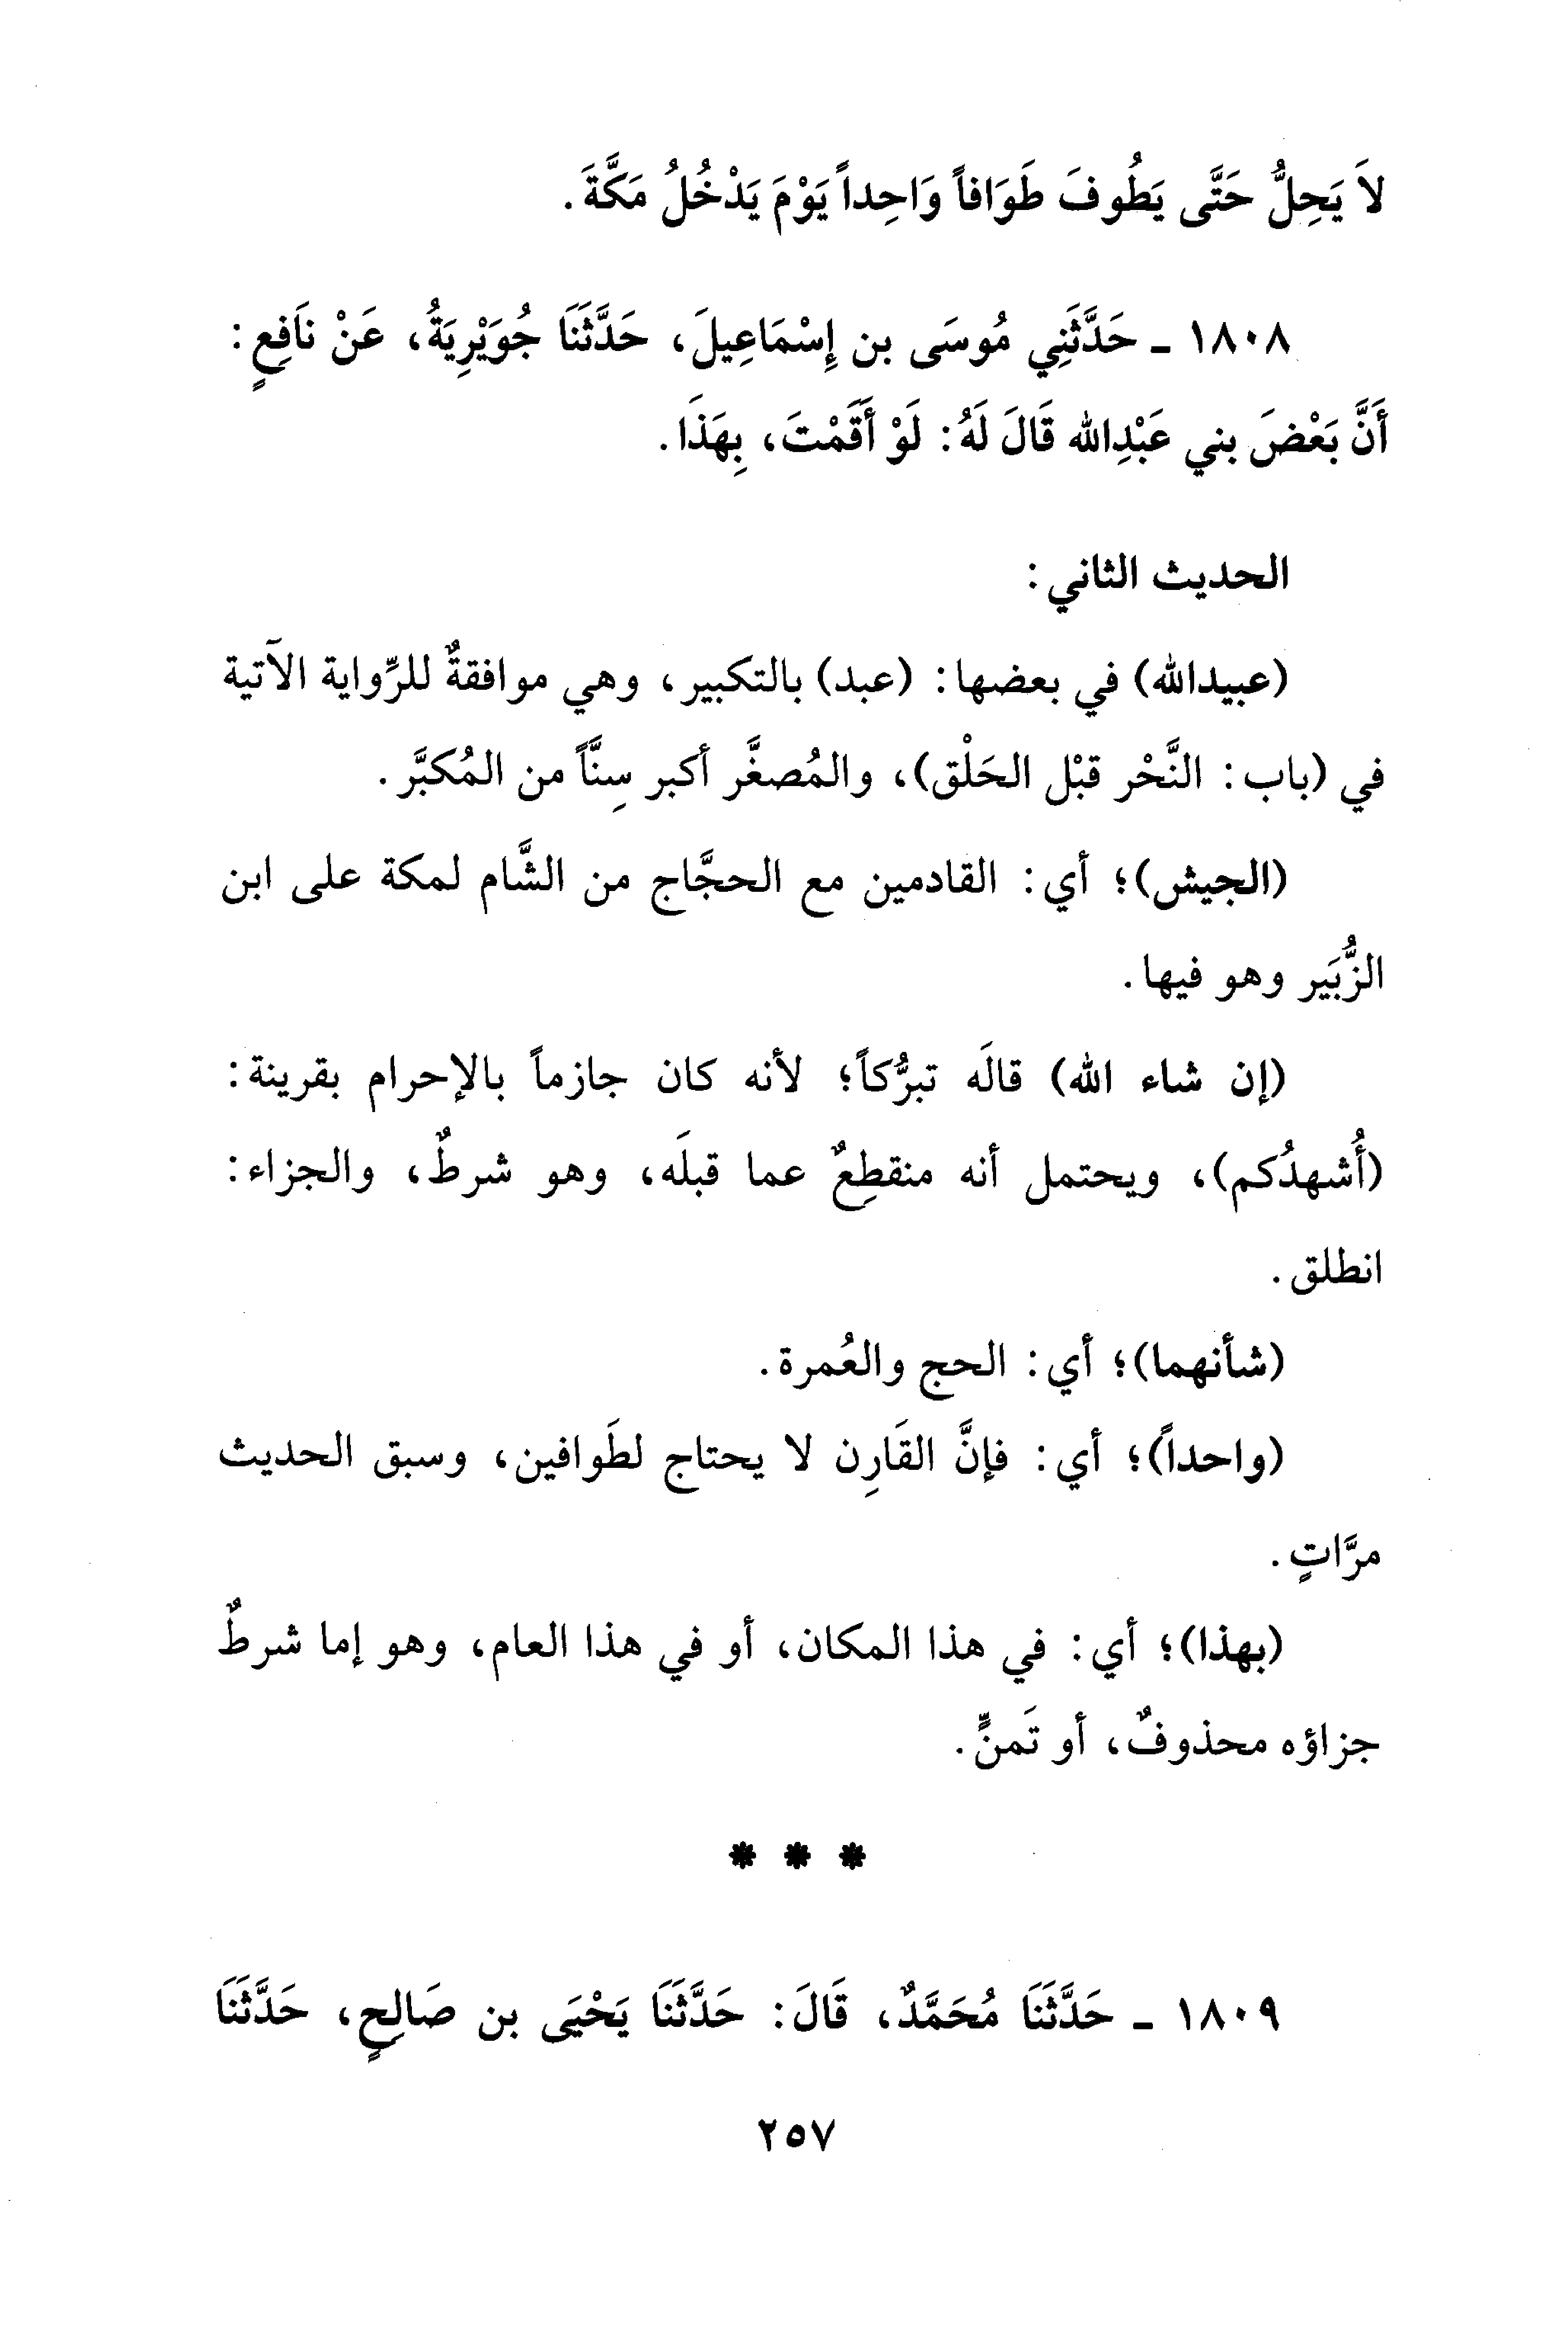 لاَ يَحِلُّ حَتَّى يَطُوفَ طَوَافاً وَاحِداً يَوْمَ يَدْخُلُ مَكَّةَ.
١٨٠٨ ـ حَدَّثَنِي مُوسَى بن إِسْمَاعِيلَ، حَدَّثَنَا جُوَيْرِيَةُ، عَنْ نَافِعٍ:
أَنَّ بَعْضَ بني عَبْدِالله قَالَ لَهُ: لَوْ أَقَمْتَ، بِهَذَا.
الحديث الثاني:
(عبيدالله) في بعضها: (عبد) بالتكبير، وهي موافقةٌ للرِّواية الآتية
في (باب: النَّحْر قبْل الحَلْق)، والمُصغَّر أكبر سِنًّاً من المُكبَّر.
(الجيش)؛ أي: القادمين مع الحجَّاج من الشَّام لمكة على ابن
الزُّبَير وهو فيها.
(إن شاء الله) قالَه تبرُّكاً؛ لأنه كان جازماً بالإحرام بقرينة:
(أُشهدُكم)، ويحتمل أنه منقطِعٌ عما قبلَه، وهو شرطٌ، والجزاء:
انطلق.
(شأنهما)؛ أي: الحج والعُمرة.
(واحداً)؛ أي: فإنَّ القَارِن لا يحتاج لطَوافين، وسبق الحديث
مرَّاتٍ.
(بهذا)؛ أي: في هذا المكان، أو في هذا العام، وهو إما شرطٌ
جزاؤه محذوفٌ، أو تَمنٍّ.
* * *
١٨٠٩ ـ حَدَّثَنَا مُحَمَّدٌ، قَالَ: حَدَّثَنَا يَحْيَى بن صَالِحٍ، حَدَّثَنَا
٢٥٧